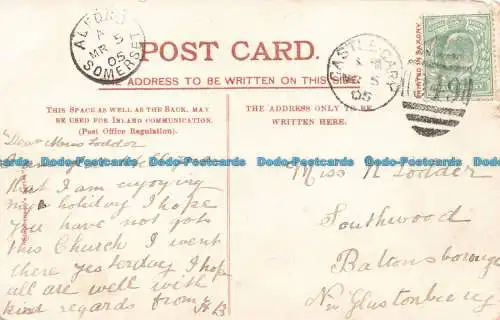 ALFORD
A
MR 5
05
SOMERSET
POST CARD.
THE ADDRESS TO BE WRITTEN ON THIS SIDE
CASTLE CARY
MR 5
05
PRINTED IN SAXONY
THIS SPACE AS WELL AS THE BACK, MAY
BE USED FOR INLAND COMMUNICATION.
(Post Office Regulation).
THE ADDRESS ONLY TO BE
WRITTEN HERE.
Dear Miss Lodder
that I am enjoying
my holiday I hope
you have not got
this Church I went
there yesterday I hope
all are well with
kind regards from
Miss N Lodder
Southwood
Baltonsborough
Nr Glastonbury
Bob-Postcards